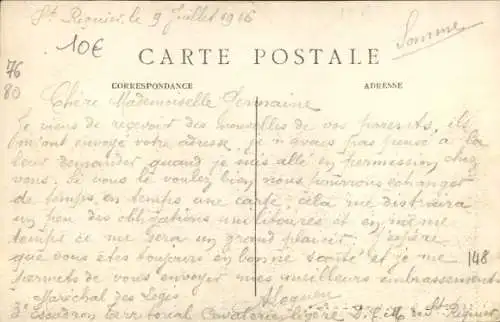 St Riquier, le 9 Juillet 1916
10€
Somme
CARTE POSTALE
CORRESPONDANCE
ADRESSE
76
80
Chère Mademoiselle Germaine
Je viens de recevoir des nouvelles de vos parents, ils
m'ont envoyé votre adresse. je n'avais pas pensé à la
leur demander quand je suis allé en permission chez
vous. Si vous le voulez bien nous pourrons échanger
de temps en temps une carte, cela me distraira
un peu des obligations militaires et en même
temps ce me sera un grand plaisir. J'espère
que vous êtes toujours en bonne santé et je me
148
permets de vous envoyer mes meilleurs embrassements
Maréchal des Logis
Escadron territorial Cavalerie légère D.E.M. de St Riquier